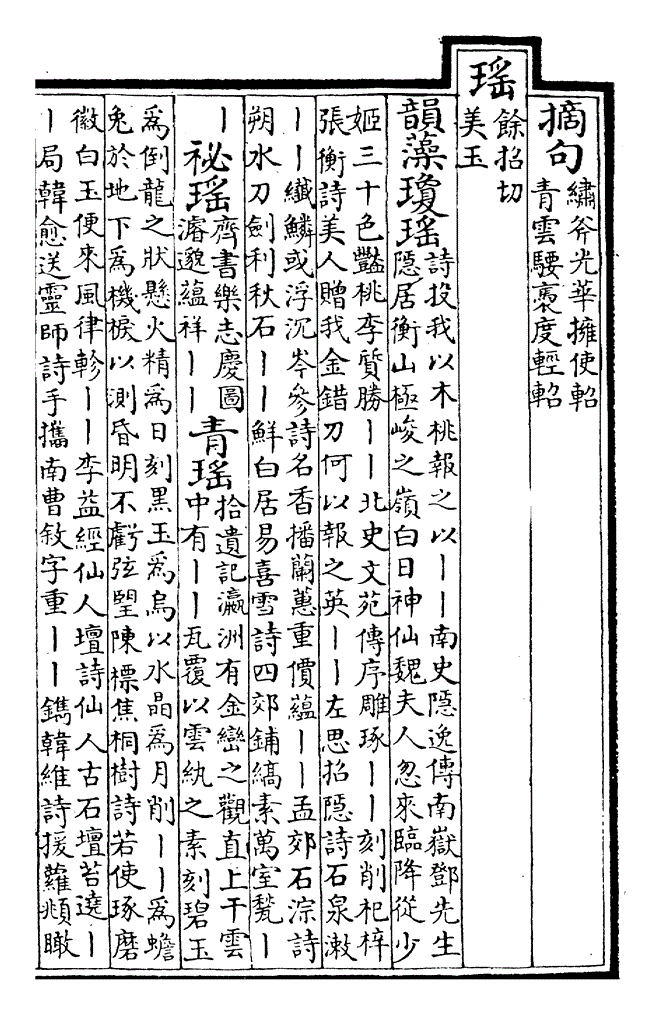 摘句
繡斧光華擁使軺
青雲騕褭度輕軺
瑤
餘招切
美玉
韻藻瓊瑤
詩投我以木桃報之以丨丨南史隱逸傳南嶽鄧先生
隱居衡山極峻之嶺白日神仙魏夫人忽來臨降從少
姬三十色豔桃李質勝丨丨北史文苑傳序雕琢丨丨刻削杞梓
張衡詩美人贈我金錯刀何以報之英丨丨左思招隱詩石泉漱
丨丨纖鱗或浮沉岑參詩名香播蘭蕙重價蘊丨丨孟郊石淙詩
朔水刀劍利秋石丨丨鮮白居易喜雪詩四郊鋪縞素萬室甃丨
丨
祕瑤
齊書樂志慶圖
濬邈蘊祥丨丨
青瑤
拾遺記瀛洲有金巒之觀直上干雲
中有丨丨瓦覆以雲紈之素刻碧玉
爲倒龍之狀懸火精爲日刻黑玉爲烏以水晶爲月削丨丨爲蟾
兔於地下爲機棙以測昏明不虧弦朢陳標焦桐樹詩若使琢磨
徽白玉便來風律軫丨丨李益經仙人壇詩仙人古石壇苔遶丨
丨局韓愈送靈師詩手攜南曹敘字重丨丨鐫韓維詩援蘿頫瞰